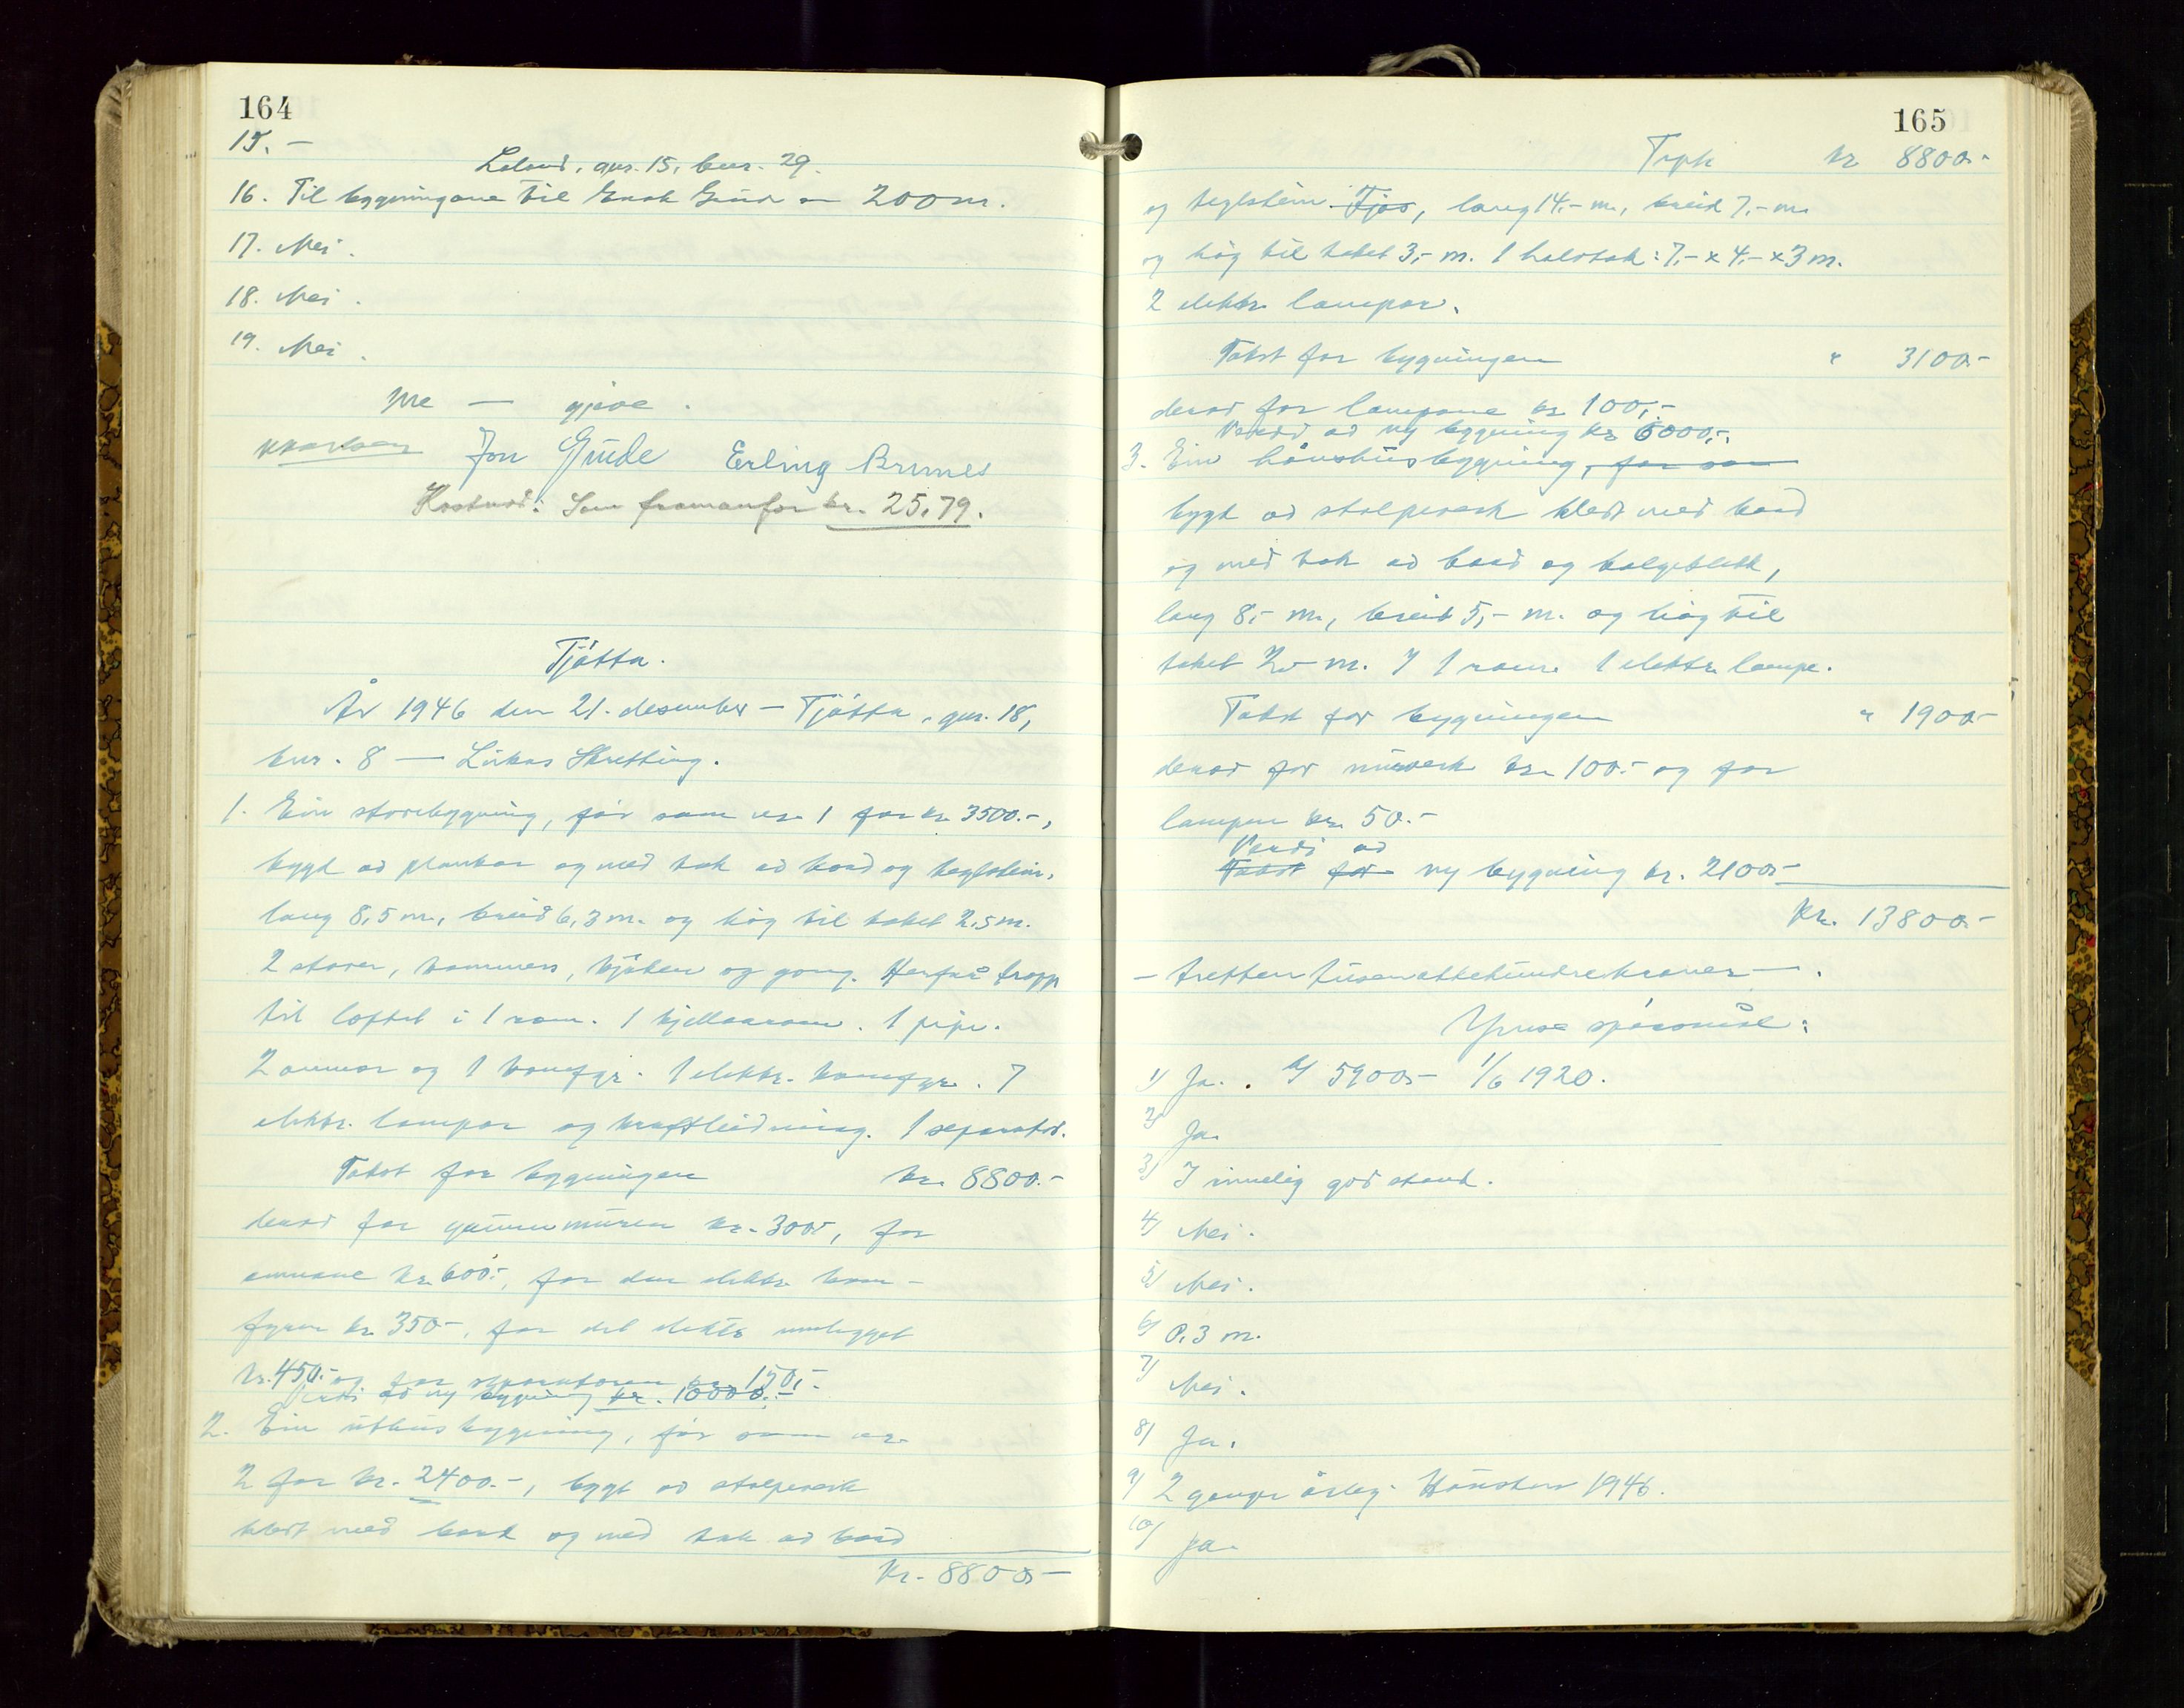 164
15. —
Laland, gnr. 15, bnr. 29.
16. Til bygningane til Enok Grude er 200 m.
17. Nei.
18. Nei.
19. Nei.
Me — gjeve.
Jon Grude Erling Brunes
Kostnad: Som framanfor kr. 25,79.
Tjøtta.
År 1946 den 21. desember — Tjøtta, gnr. 18,
bnr. 8 — Lukas Skretting.
1. Ein stovebygning, før som nr. 1 for kr. 3500.-,
bygt av plankar og med tak av bord og teglstein,
lang 8,5 m., breid 6,3 m. og høg til taket 2,5 m.
2 stover, kammers, kjøken og gong. Herfrå tropp
til loftet i 1 rom. 1 kjellarrom. 1 pipe.
2 omnar og 1 komfyr. 1 elektr. komfyr. 7
elektr. lampor og kraftleidning. 1 separator.
Takst for bygningen kr. 8800.-
derav for grunnmuren kr. 300,-, for
omnane kr. 600.-, for den elektr. kom-
fyren kr. 350-, for det elektr. innlegget
kr. 450.- og for separatoren kr. 150,-.
Verdi av ny bygning kr. 10000.-
2. Ein uthusbygning, før som nr.
2 for kr. 2400.-, bygt av stolpeverk
kledt med bord og med tak av bord
kr. 8800,-
165
Trpt. kr 8800.-
og teglstein. Fjøs, lang 14,- m., breid 7,- m.
og høg til taket 3,- m. 1 halvtak: 7,- x 4,- x 3 m.
2 elektr. lampor.
Takst for bygningen " 3100.-
derav for lampone kr. 100,-
Verdi av ny bygning kr. 6000,-.
3. Ein hønshusbygning, før som
bygt av stolpeverk kledt med bord
og med tak av bord og bølgeblekk,
lang 8,- m., breid 5,- m. og høg til
taket 2,- m. I 1 rom. 1 elektr. lampe.
Takst for bygningen " 1900.-
derav for murverk kr. 100.- og for
lampen kr. 50.-
Verdi av
Takst for ny bygning kr. 2100,-
Kr. 13800.-
— trettentusenåttehundrekroner —.
Ymse spørsmål:
1) Ja. . 5900,- 1/6 1920.
2) Ja.
3) I rimeleg god stand.
4) Nei.
5) Nei.
6) 0.3 m.
7) Nei.
8) Ja.
9) 2 gonger årleg. Hausten 1946.
10) Ja.